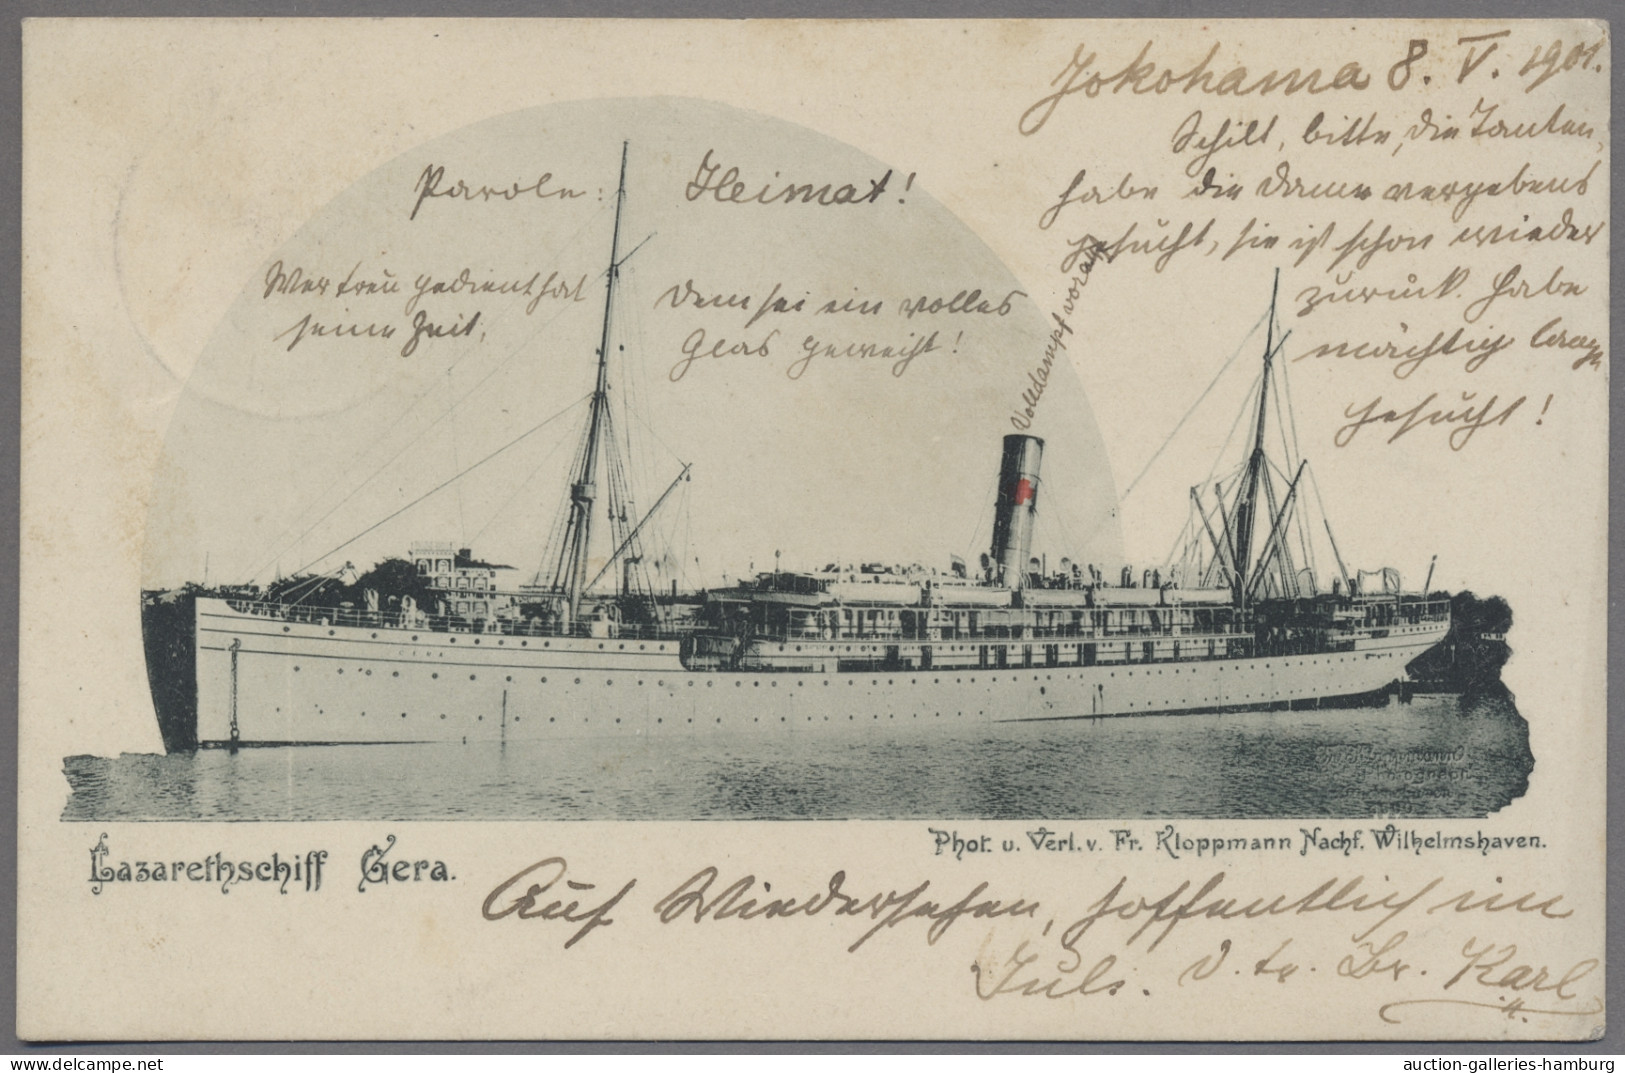 Yokohama 8. V. 1901.
Schilt, bitte, die Tanten,
habe die Dame vergebens
gesucht, sie ist schon wieder
zurück. Habe
mächtig lange
gesucht!
Parole: Heimat!
Wer treu gedient hat
seine Zeit,
dem sei ein volles
Glas geweiht!
Volldampf voraus
Lazarethschiff Gera.
Phot. u. Verl. v. Fr. Kloppmann Nachf. Wilhelmshaven.
Auf Wiedersehen, hoffentlich im
Juli. D. tr. Br. Karl
delcampe.net
auction-galleries-hamburg